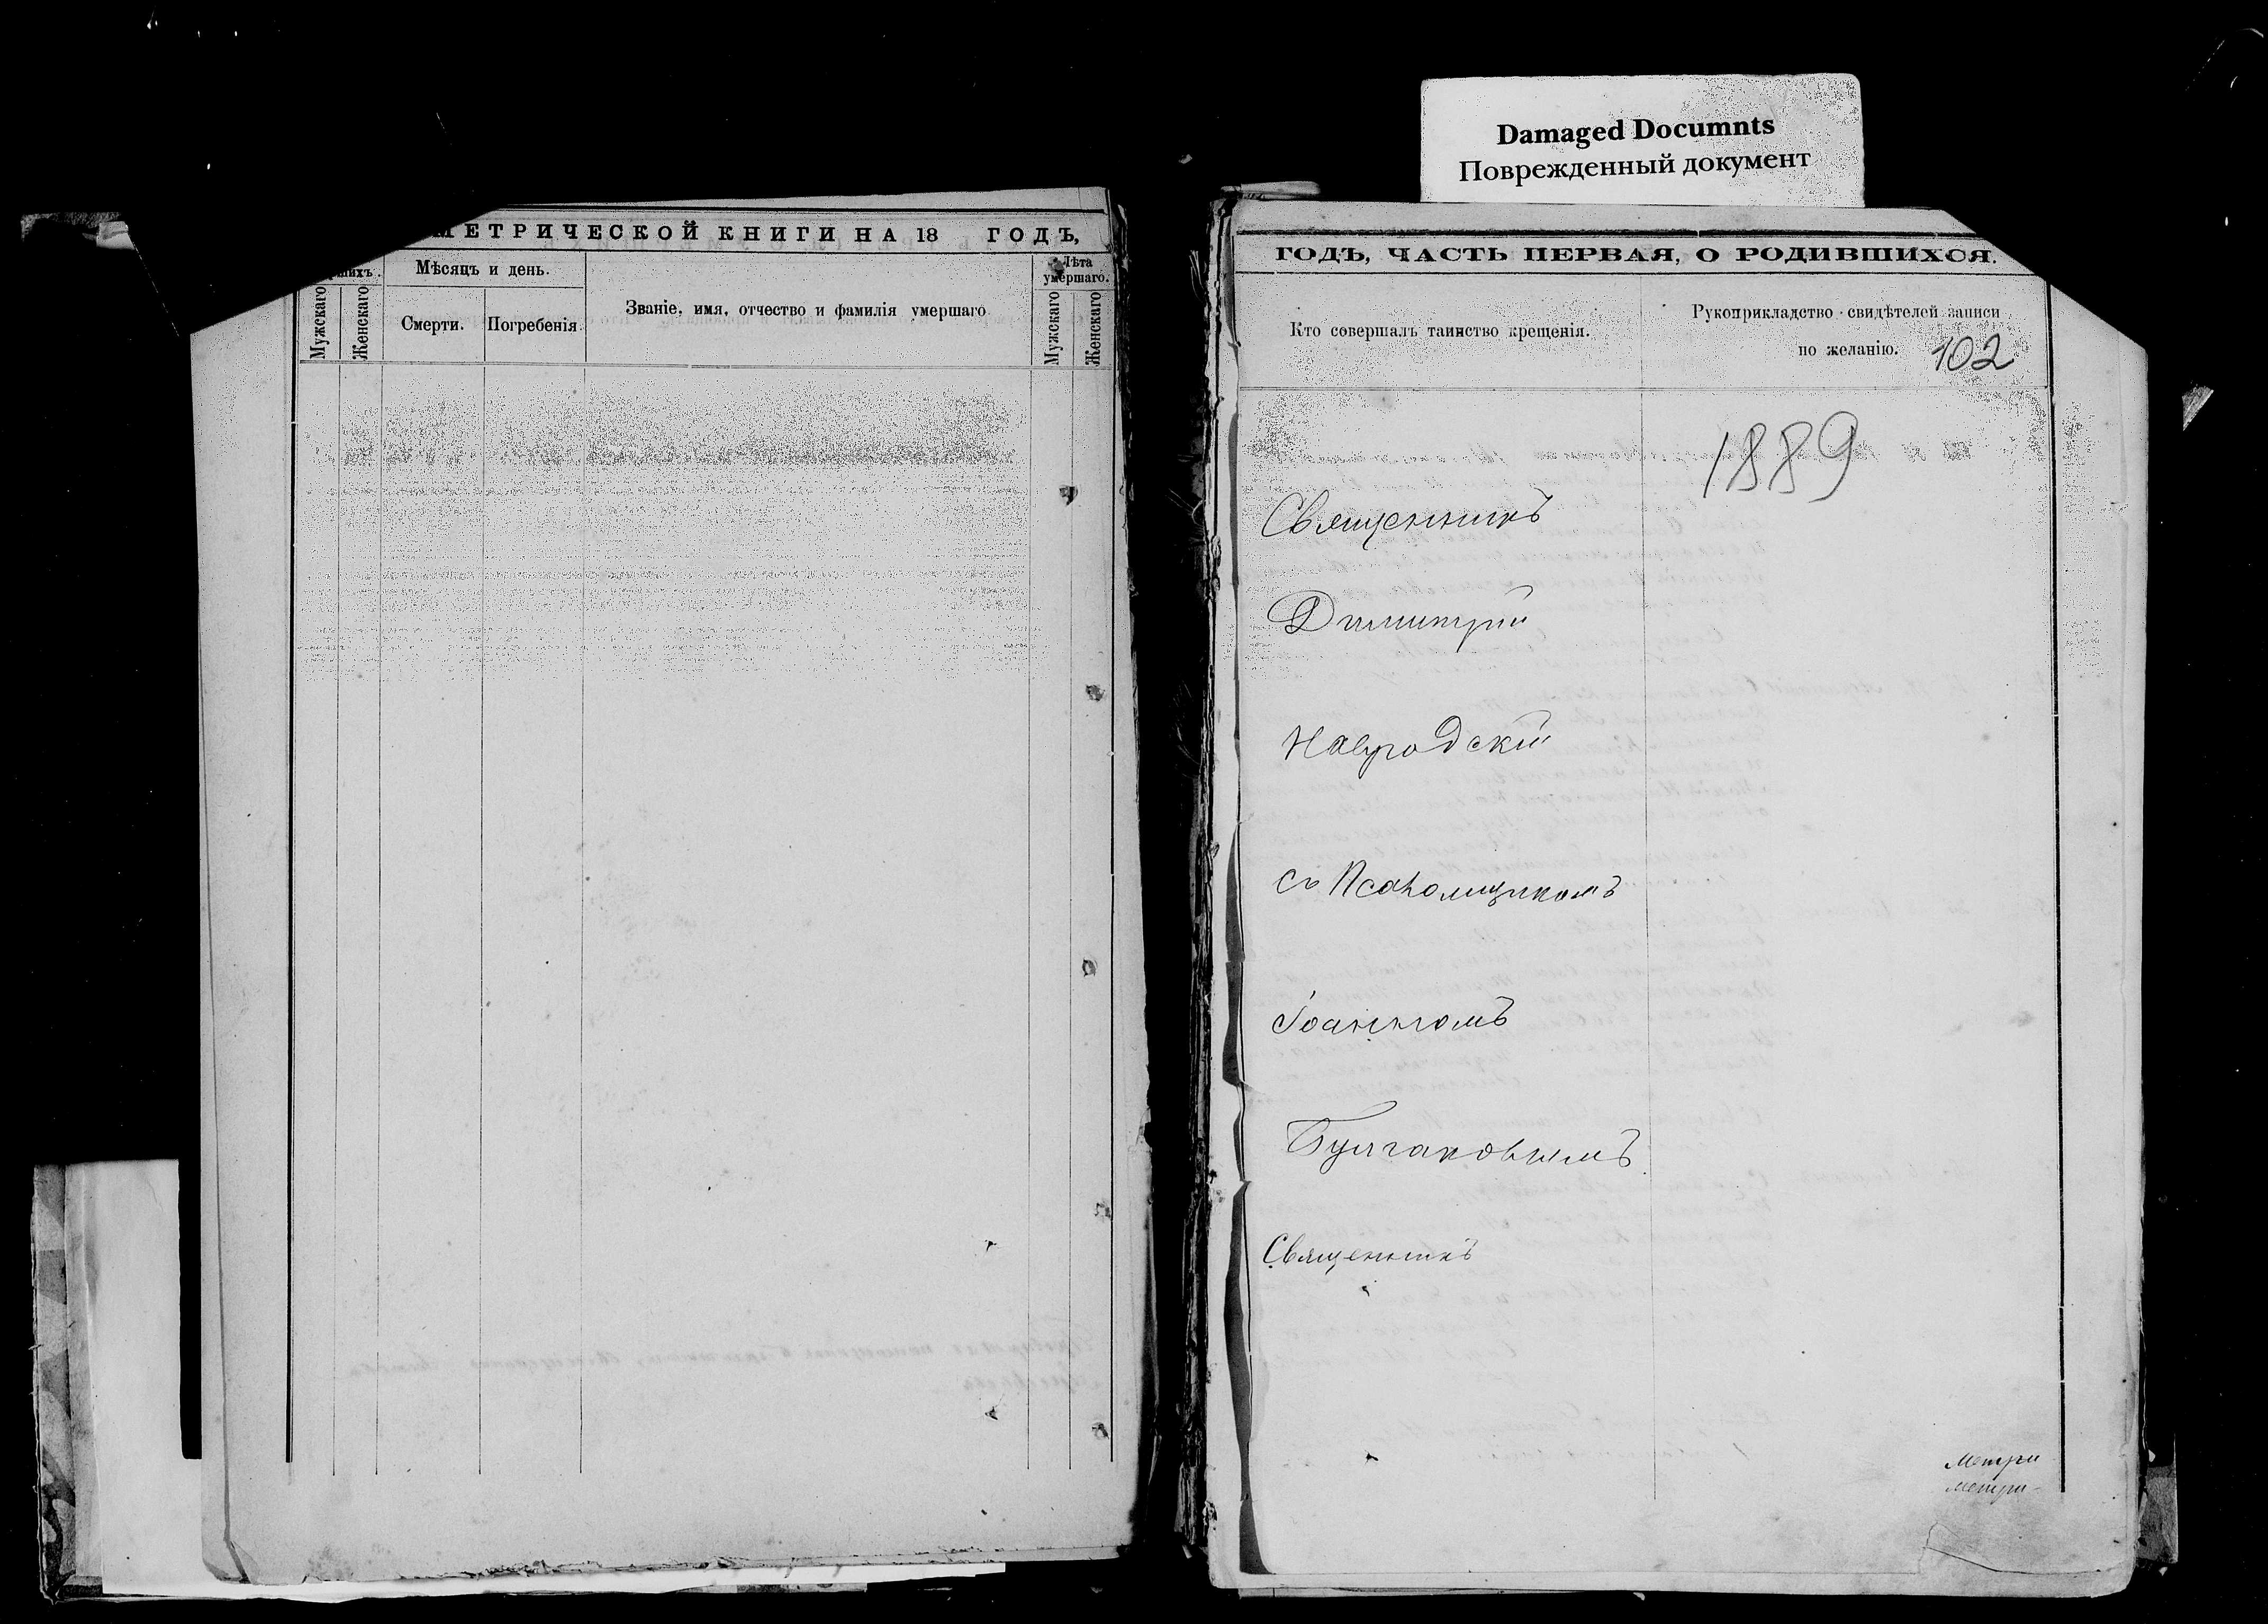 Damaged Documnts
Поврежденный документ
МЕТРИЧЕСКОЙ КНИГИ НА 18 ГОДЪ,
Мѣсяцъ и день.
Лѣта
умершаго.
Мужскаго
Женскаго
Смерти.
Погребенія.
Званіе, имя, отчество и фамилія умершаго
Мужскаго
Женскаго
ГОДЪ, ЧАСТЬ ПЕРВАЯ, О РОДИВШИХСЯ.
Кто совершалъ таинство крещенія.
Рукоприкладство свидѣтелей записи
по желанію.
102
1889
Священникъ
Димитрій
Навродскій
съ Псаломщикомъ
Іоанномъ
Булгаковымъ
Священникъ
Метри
Метри-